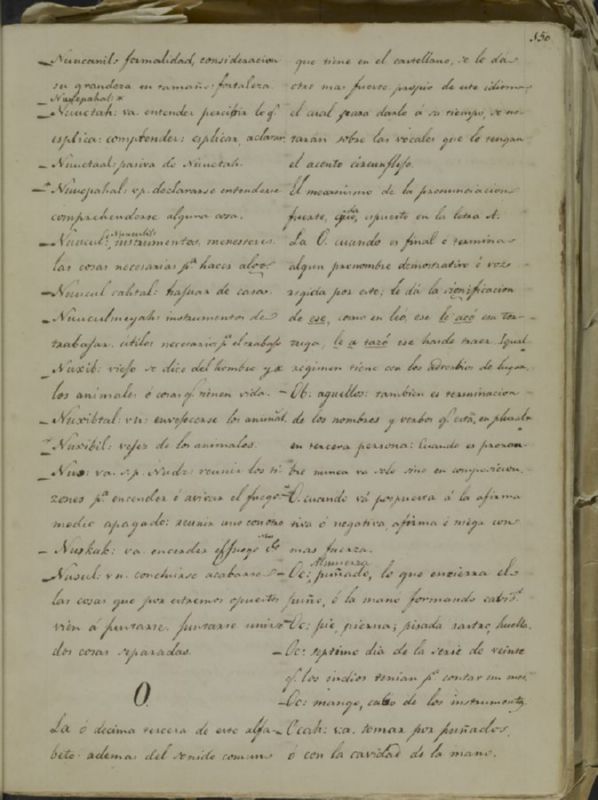 150
Nuucanil: formalidad, consideracion
su grandeza en tamaño: fortaleza.
Nucpahal:*
Nuuctah: va. entender percibir lo q.
esplica: comprender: esplicar, aclarar
Nuuctaal: pasiva de Nuuctah.
Nuucpahal: vp. declararse entenderse
comprehenderse alguna cosa.
Nuucul: instrumentos, menesteres
las cosas necesarias pa. hacer algo.
Nuucul cahtal: trajuar de casa.
Nuuculmeyah: instrumentos de
trabajar. utiles necesarios pa. el trabajo
Nuxib: viejo se dice del hombre y
los animales ó cosas q. tienen vida.
Nuxibtal: vn: envejecerse los animals.
Nuxibil: vejez de los animales.
va. s.p. reunir los ti-
zones pa. encender ó avivar el fuego
medio apagado: reunir uno con otro
Nupkak: va encender el fuego
vn. concluirse acabarse
las cosas que por estremos opuestos
vien á juntarse. juntarse unirse
dos cosas separadas.
O.
La ó decima tercera de este alfa-
beto ademas del sonido comun
que tiene en el castellano, se le dá
otro mas fuerte propio de este idioma
el cual para darlo á su tiempo, se no-
tarán sobre las vocales que lo tengan
el acento circunflejo.
El mecanismo de la pronunciacion
fuerte, queda espuesto en la letra A.
La O. cuando es final ó termina
algun pronombre demostrativo ó voz
regida por este; le dá la significacion
de ese, como en leó, ese le acó esa tor-
tuga, le a tazó ese haz de traer. Igual
regimen tiene con los adverbios de lugar.
Ob. aquellos: tambien es terminacion
de los nombres y verbos q. está en plural
en tercera persona: Cuando es pronom-
bre nunca va solo sino en composicion.
O. cuando vá pospuesta á la afirma
tiva ó negativa, afirma ó niega con
mas fuerza.
Oc: puñado, lo que encierra el
puño, ó la mano formando
Oc: pie, pierna; pisada rastro, huella
Oc: septimo dia de la serie de veinte
q. los indios tenian pa. contar su mes.
Oc: mango, cabo de los instrumentos.
Ocah: va. tomar por puñados,
ó con la cavidad de la mano.